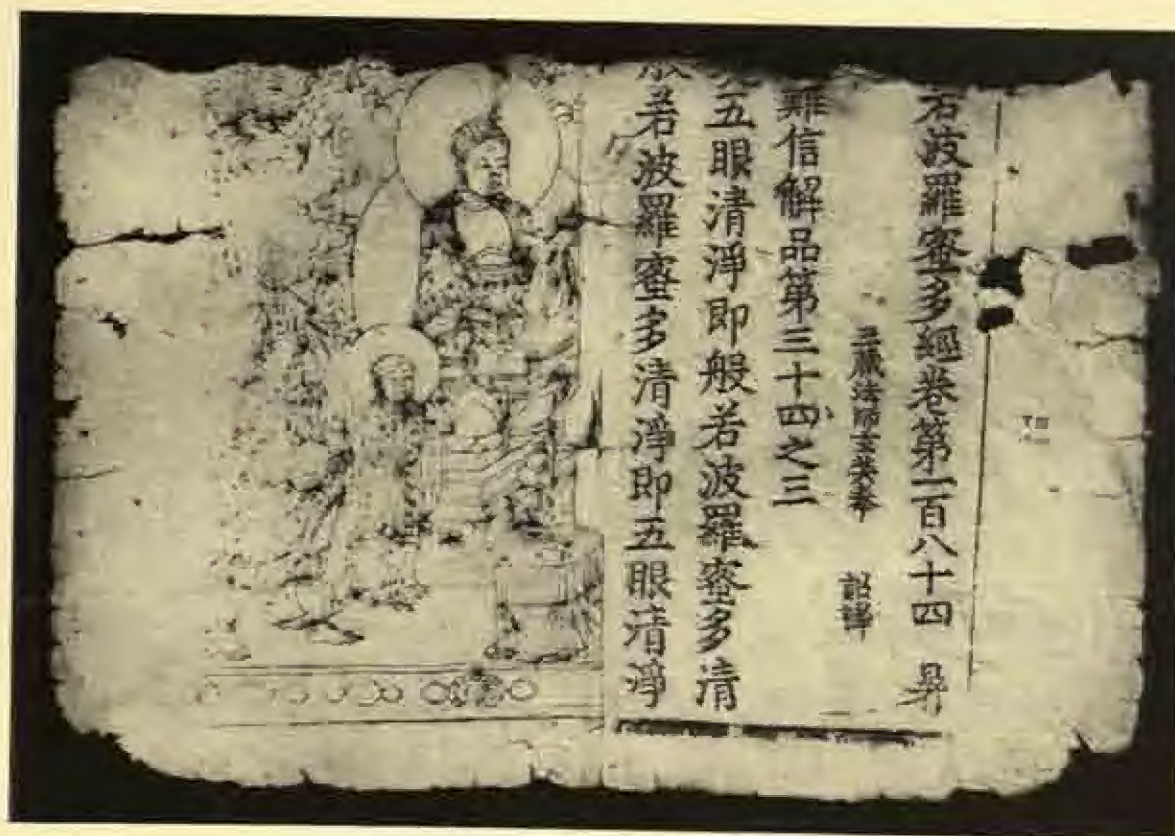 若波羅蜜多經卷第一百八十四
三藏法師玄奘奉 詔譯
難信解品第三十四之三
五眼清淨即般若波羅蜜多清
般若波羅蜜多清淨即五眼清淨